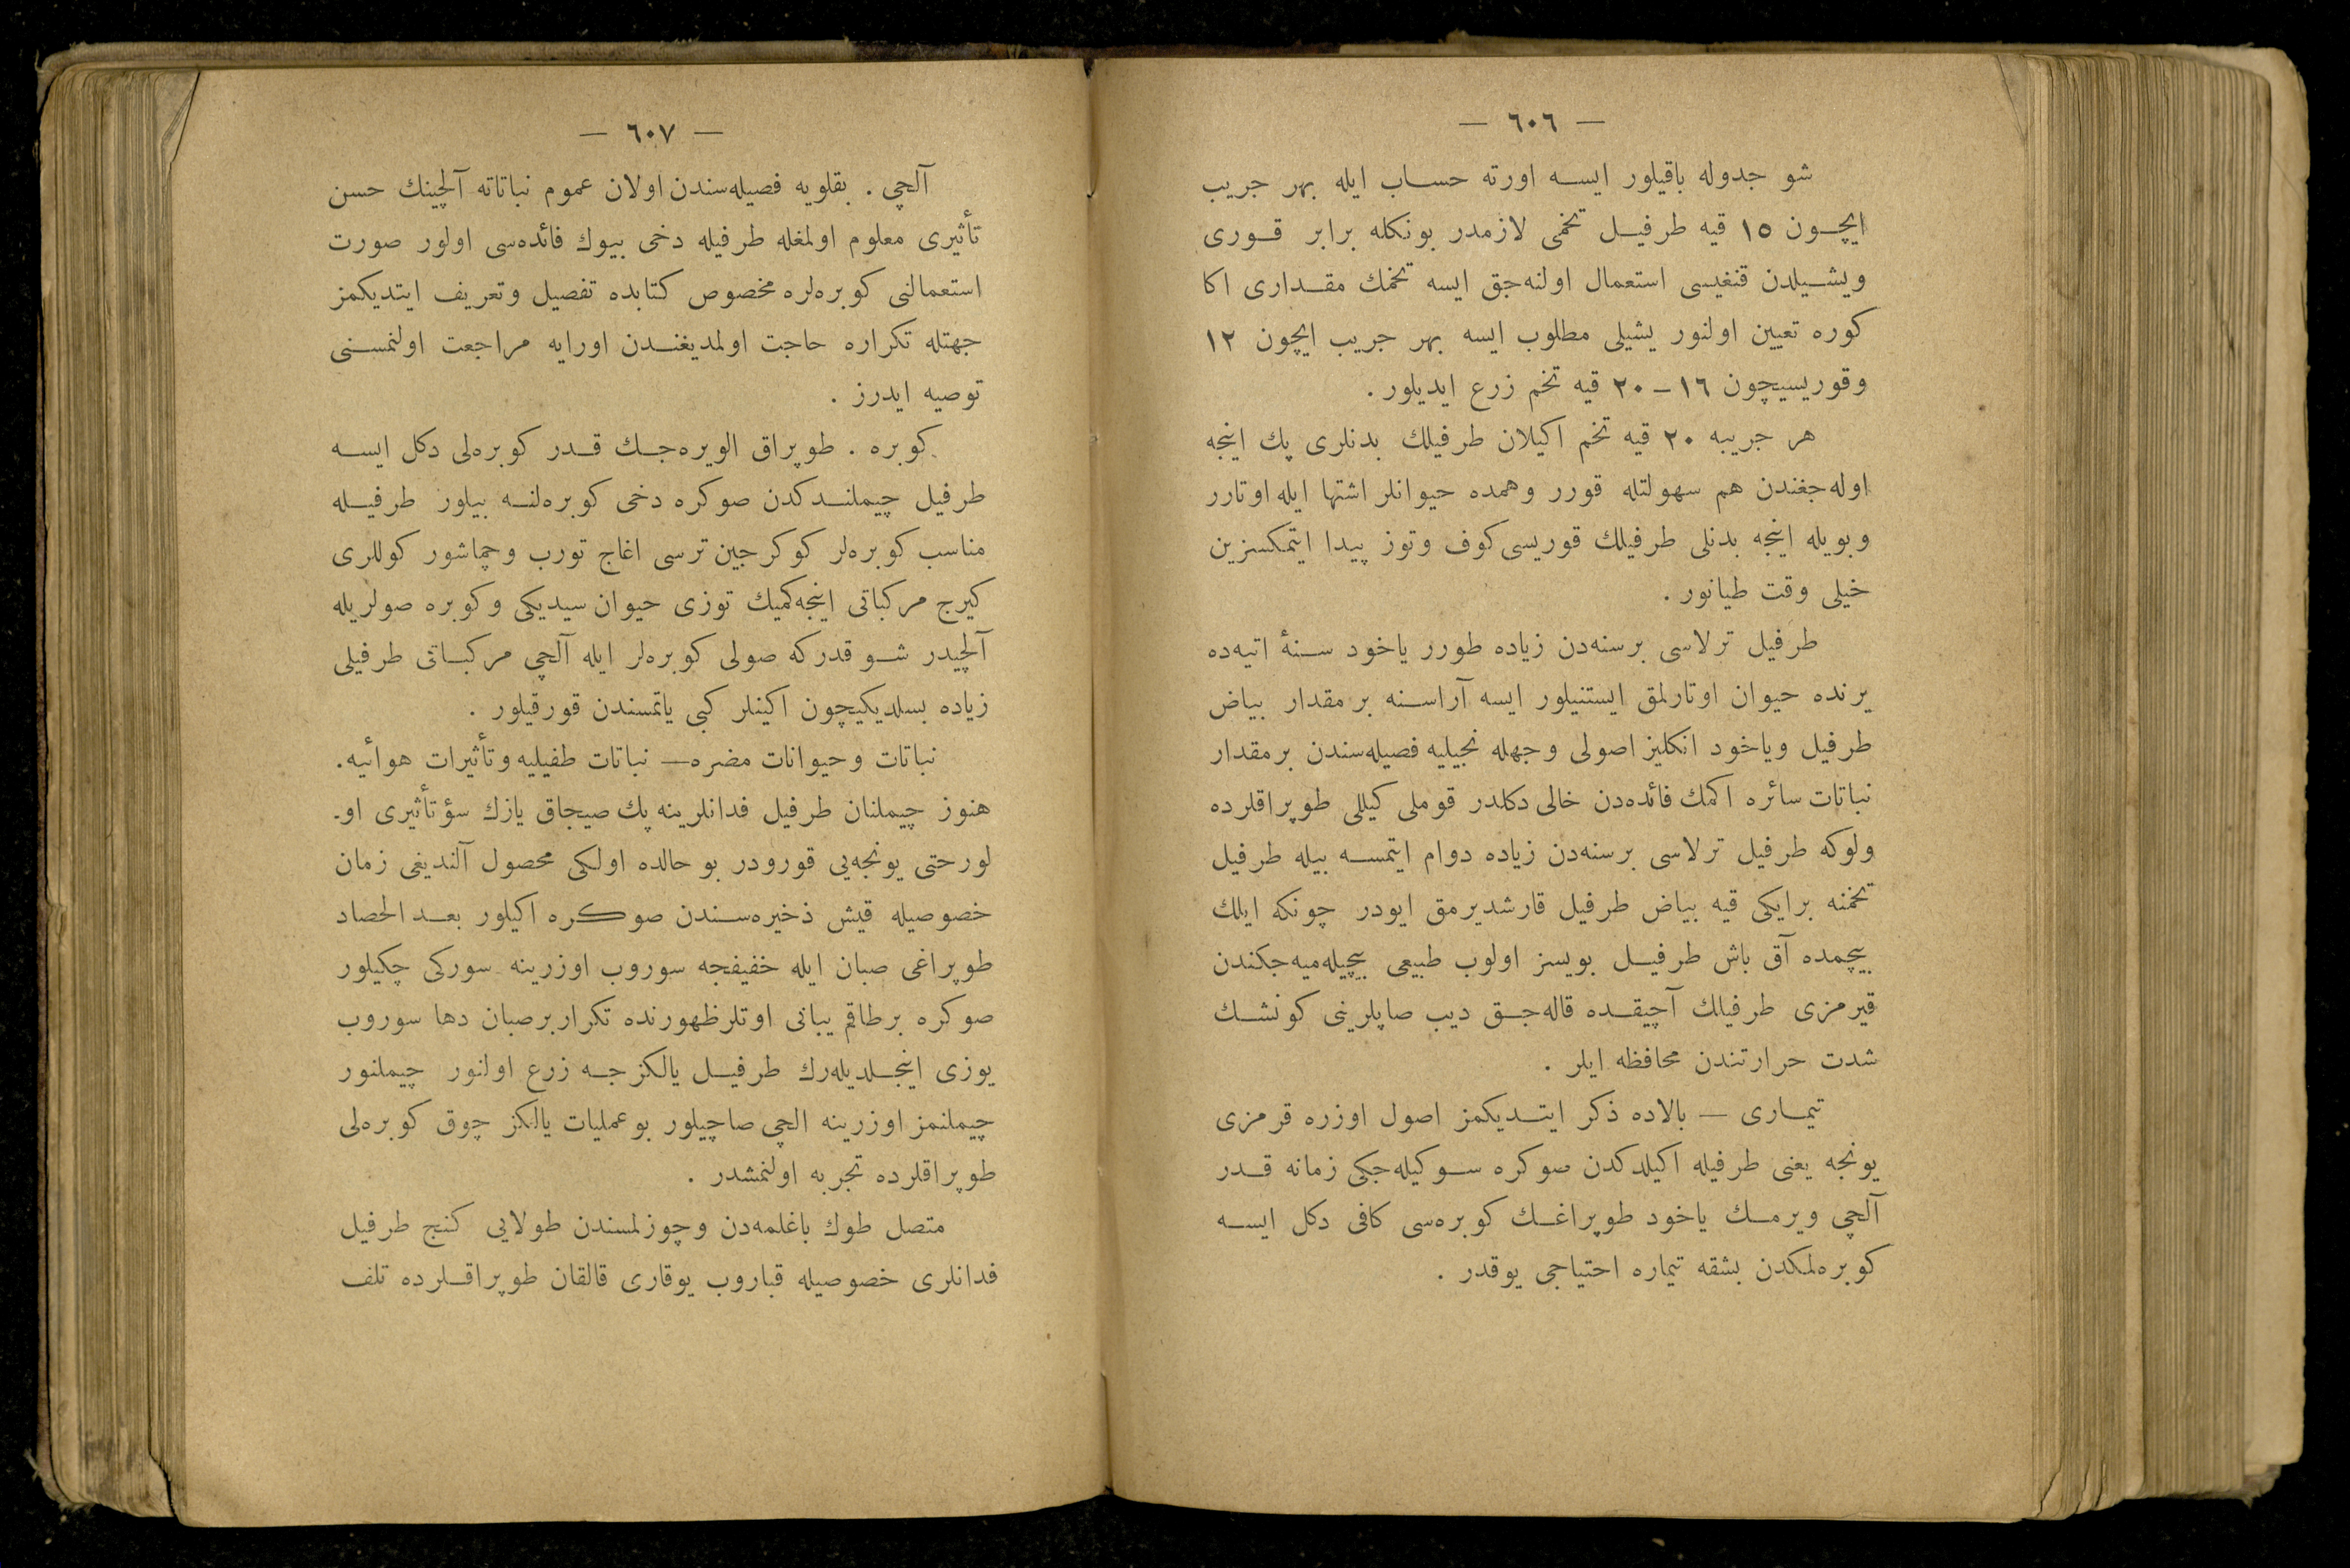 — ٦٠٦ —
شو جدوله باقیلور ایسه اورته حساب ایله بهر جریب
ایچون ١٥ قیه طرفیل تخمی لازمدر بونكله برابر قوری
ویشیلدن قنغیسی استعمال اولنه‌جق ایسه تخمك مقداری اكا
كوره تعیین اولنور یشیلی مطلوب ایسه بهر جریب ایچون ١٢
وقوریسیچون ١٦ – ٢٠ قیه تخم زرع ایدیلور .
هر جریبه ٢٠ قیه تخم اكیلان طرفیلك بدنلری پك اینجه
اوله‌جغندن هم سهولتله قورر وهمده حیوانلر اشتها ایله اوتارر
وبویله اینجه بدنلی طرفیلك قوریسی كوف وتوز پیدا ایتمكسزین
خیلی وقت طیانور .
طرفیل ترلاسی برسنه‌دن زیاده طورر یاخود سنهٔ اتیه‌ده
یرنده حیوان اوتارلمق ایستنیلور ایسه آراسنه بر مقدار بیاض
طرفیل ویاخود انكلیز اصولی وجهله نجیلیه فصیله‌سندن برمقدار
نباتات سائره اكمك فائده‌دن خالی دكلدر قوملی كیللی طوپراقلرده
ولوكه طرفیل ترلاسی برسنه‌دن زیاده دوام ایتمسه بیله طرفیل
تخمنه برایكی قیه بیاض طرفیل قارشدیرمق ایودر چونكه ایلك
بیچمده آق باش طرفیل بویسز اولوب طبیعی بیچیله‌میه‌جكندن
قیرمزی طرفیلك آچیقده قاله‌جق دیب صاپلرینی كونشك
شدت حرارتندن محافظه ایلر .
تیماری — بالاده ذكر ایتدیكمز اصول اوزره قرمزی
یونجه یعنی طرفیله اكیلدكدن صوكره سوكیله‌جكی زمانه قدر
آلچی ویرمك یاخود طوپراغك كوبره‌سی كافی دكل ایسه
كوبره‌لمكدن بشقه تیماره احتیاجی یوقدر .
— ٦٠٧ —
آلچی . بقلویه فصیله‌سندن اولان عموم نباتاته آلچینك حسن
تأثیری معلوم اولمغله طرفیله دخی بیوك فائده‌سی اولور صورت
استعمالنی كوبره‌لره مخصوص كتابده تفصیل وتعریف ایتدیكمز
جهتله تكراره حاجت اولمدیغندن اورایه مراجعت اولنمسنی
توصیه ایدرز .
كوبره . طوپراق الویره‌جك قدر كوبره‌لی دكل ایسه
طرفیل چیملندكدن صوكره دخی كوبره‌لنه بیلور طرفیله
مناسب كوبره‌لر كوكرجین ترسی اغاج تورب وچماشور كوللری
كیرج مركباتی اینجه‌كمیك توزی حیوان سیدیكی وكوبره صولریله
آلچیدر شو قدركه صولی كوبره‌لر ایله آلچی مركباتی طرفیلی
زیاده بسلدیكیچون اكینلر كبی یاتمسندن قورقیلور .
نباتات وحیوانات مضره — نباتات طفیلیه وتأثیرات هوائیه.
هنوز چیملنان طرفیل فدانلرینه پك صیجاق یازك سؤتأثیری او-
لورحتی یونجه‌یی قورودر بو حالده اولكی محصول آلندیغی زمان
خصوصیله قیش ذخیره‌سندن صوكره اكیلور بعد الحصاد
طوپراغی صبان ایله خفیفجه سوروب اوزرینه سوركی چكیلور
صوكره برطاقم یبانی اوتلرظهورنده تكراربرصبان دها سوروب
یوزی اینجلدیله‌رك طرفیل یالكزجه زرع اولنور چیملنور
چیملنمز اوزرینه الچی صاچیلور بوعملیات یالكز چوق كوبره‌لی
طوپراقلرده تجربه اولنمشدر .
متصل طوك باغلمه‌دن وچوزلمسندن طولایی كنج طرفیل
فدانلری خصوصیله قباروب یوقاری قالقان طوپراقلرده تلف